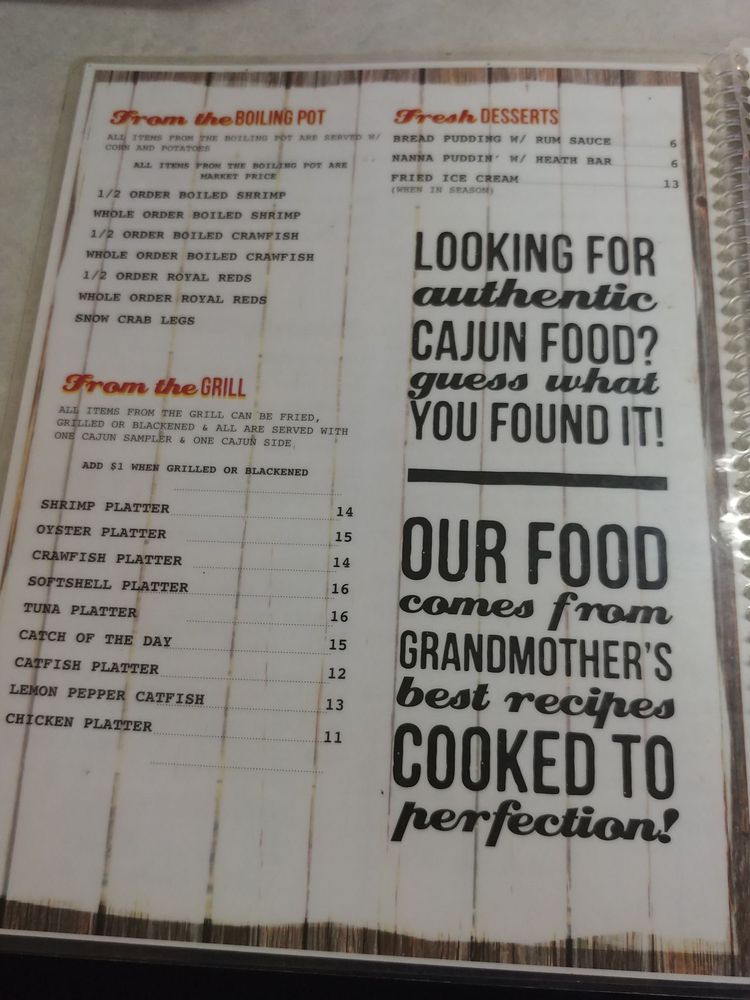 From the BOILING POT
ALL ITEMS FROM THE BOILING POT ARE SERVED W/
CORN AND POTATOES
ALL ITEMS FROM THE BOILING POT ARE
MARKET PRICE
1/2 ORDER BOILED SHRIMP
WHOLE ORDER BOILED SHRIMP
1/2 ORDER BOILED CRAWFISH
WHOLE ORDER BOILED CRAWFISH
1/2 ORDER ROYAL REDS
WHOLE ORDER ROYAL REDS
SNOW CRAB LEGS
From the GRILL
ALL ITEMS FROM THE GRILL CAN BE FRIED,
GRILLED OR BLACKENED & ALL ARE SERVED WITH
ONE CAJUN SAMPLER & ONE CAJUN SIDE
ADD $1 WHEN GRILLED OR BLACKENED
SHRIMP PLATTER 14
OYSTER PLATTER 15
CRAWFISH PLATTER 14
SOFTSHELL PLATTER 16
TUNA PLATTER 16
CATCH OF THE DAY 15
CATFISH PLATTER 12
LEMON PEPPER CATFISH 13
CHICKEN PLATTER 11
Fresh DESSERTS
BREAD PUDDING W/ RUM SAUCE 6
NANNA PUDDIN' W/ HEATH BAR 6
FRIED ICE CREAM 13
(WHEN IN SEASON)
LOOKING FOR
authentic
CAJUN FOOD?
guess what
YOU FOUND IT!
OUR FOOD
comes from
GRANDMOTHER'S
best recipes
COOKED TO
perfection!